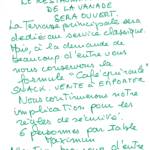 LE RESTAURANT
DE LA VANADE
SERA OUVERT.
La Terrasse principale sera
dédiée au service classique
Mais, à la demande de
beaucoup d'entre vous
nous conservons la
formule "Café qui roule"
SNACK. VENTE à EMPORTER
Nous continuerons notre
implication pour les
règles de sécurité.
6 personnes par table
Maximum